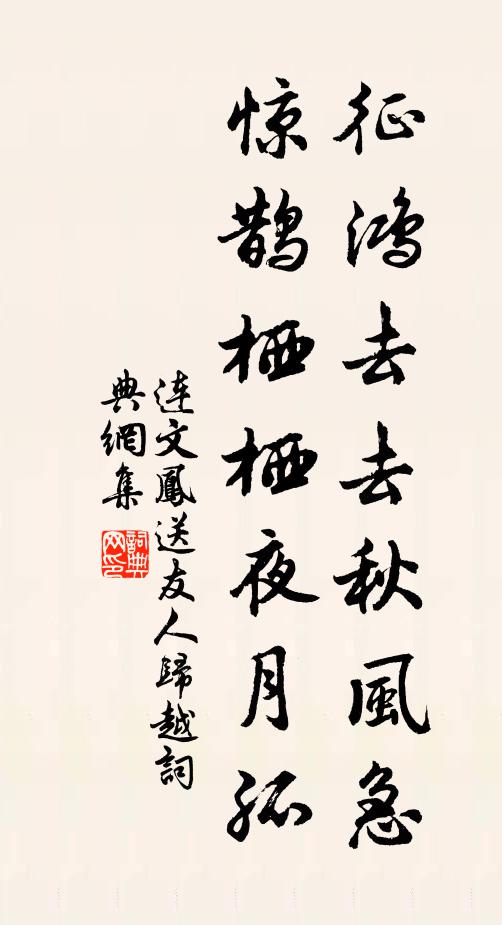 征鴻去去秋風急
惊鵲栖栖夜月孤
連文鳳送友人歸越詞
典網集
詞典
网印